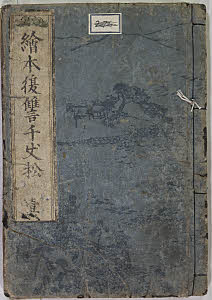 繪本復讐千丈松
壹